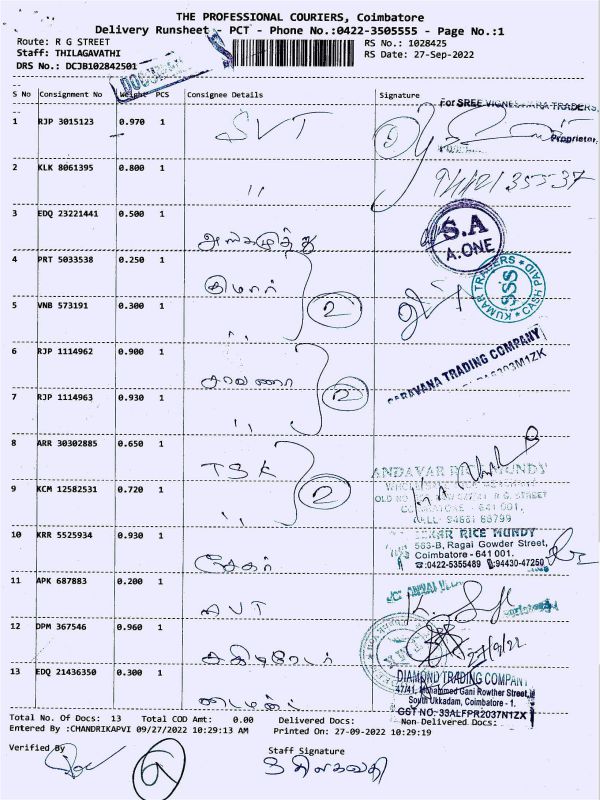 THE PROFESSIONAL COURIERS, Coimbatore
Delivery Runsheet - PCT - Phone No.:0422-3505555 - Page No.:1
Route: R G STREET
RS No.: 1028425
Staff: THILAGAVATHI
RS Date: 27-Sep-2022
DRS No.: DCJB102842501
DOCUMENT
S No Consignment No Weight PCS Consignee Details Signature
For SREE VIGNESHWARA TRADERS,
1 RJP 3015123 0.970 1 SVT
Proprietor
2 KLK 8061395 0.800 1 ,,
3 EDQ 23221441 0.500 1
S.A
A.ONE
4 PRT 5033538 0.250 1 குமார்
KUMAR TRADERS
SSS
CASH PAID
5 VNB 573191 0.300 1 ,,
2
6 RJP 1114962 0.900 1 சரவணா
SARAVANA TRADING COMPANY
7 RJP 1114963 0.930 1 ,,
2
8 ARR 30302885 0.650 1 TSK
ANDAVAR RICE MUNDY
9 KCM 12582531 0.720 1 ,,
2
R.G. STREET
COIMBATORE - 641 001.
10 KRR 5525934 0.930 1 சேகர்
SEKAR RICE MUNDY
563-B, Ragai Gowder Street,
Coimbatore - 641 001.
☎:0422-5355489 📱:94430-47250
11 APK 687883 0.200 1 AVT
12 DPM 367546 0.960 1
27/9/22
13 EDQ 21436350 0.300 1
DIAMOND TRADING COMPANY
47/41, Mohammed Gani Rowther Street,
South Ukkadam, Coimbatore - 1.
GST NO: 33ALFPR2037N1ZX
Total No. Of Docs: 13 Total COD Amt: 0.00 Delivered Docs: Non Delivered Docs:
Entered By :CHANDRIKAPVI 09/27/2022 10:29:13 AM Printed On: 27-09-2022 10:29:19
Verified By
Staff Signature
திலகவதி